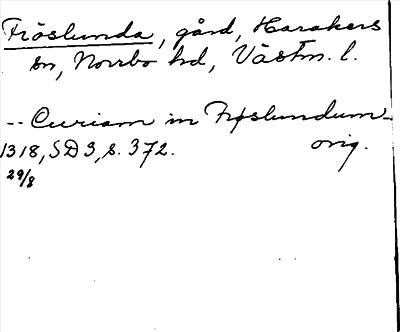 Fröslunda, gård, Harakers
sn, Norrbo hd, Västm. l.
-- Curiam in Frøslundum -
1318, SD 3, s. 372. orig.
29/8